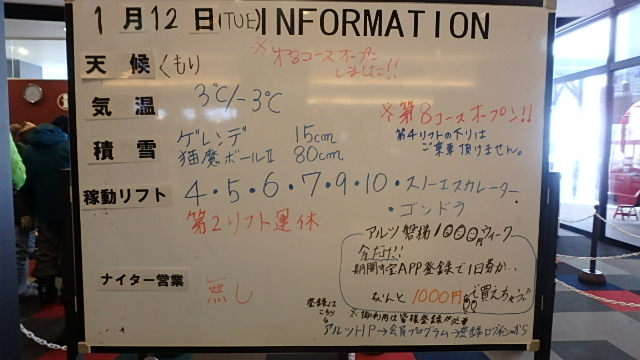 1月12日(TUE) INFORMATION
天候 くもり
※第8コースオープン
しました!!
気温 3℃/-3℃
※第8コースオープン!!
第4リフトの下りは
ご乗車頂けません。
積雪 ゲレンデ 15cm
猫魔ボールⅡ 80cm
稼動リフト 4・5・6・7・9・10・スノーエスカレーター
・ゴンドラ
第2リフト運休
アルツ磐梯1000円ウィーク
今だけ!!
期間限定APP登録で1日券が..
なんと1000円で買えちゃう
ナイター営業 無し
登録は
こちら
※御利用は皆様登録が必要
アルツHP→会員プログラム→登録